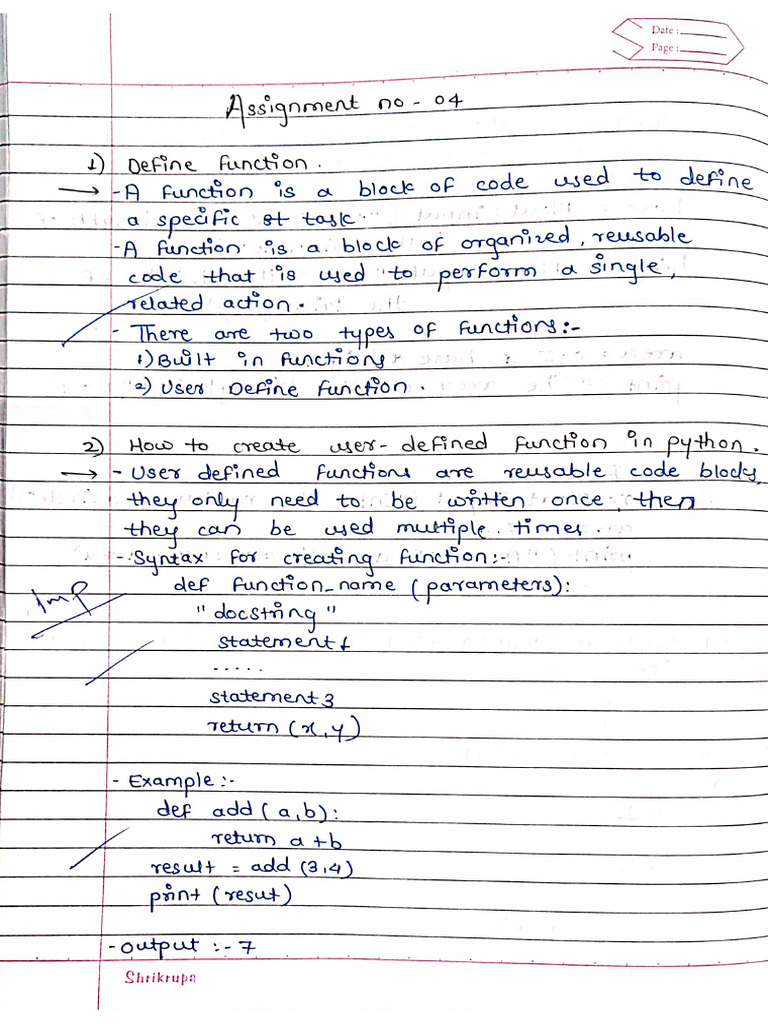 Date :
Page :
Assignment no - 04
1) Define function.
→ - A function is a block of code used to define
a specific task
- A function is a block of organized, reusable
code that is used to perform a single,
related action.
- There are two types of functions:-
1) Built in functions
2) User Define function.
2) How to create user-defined function in python.
→ - User defined functions are reusable code blocks,
they only need to be written once, then
they can be used multiple times.
- Syntax for creating function:-
def function_name (parameters):
Imp
"docstring"
statement 1
.....
statement 3
return (x, y)
- Example :-
def add (a, b):
return a + b
result = add (3,4)
print (resut)
- output :- 7
Shrikrupa